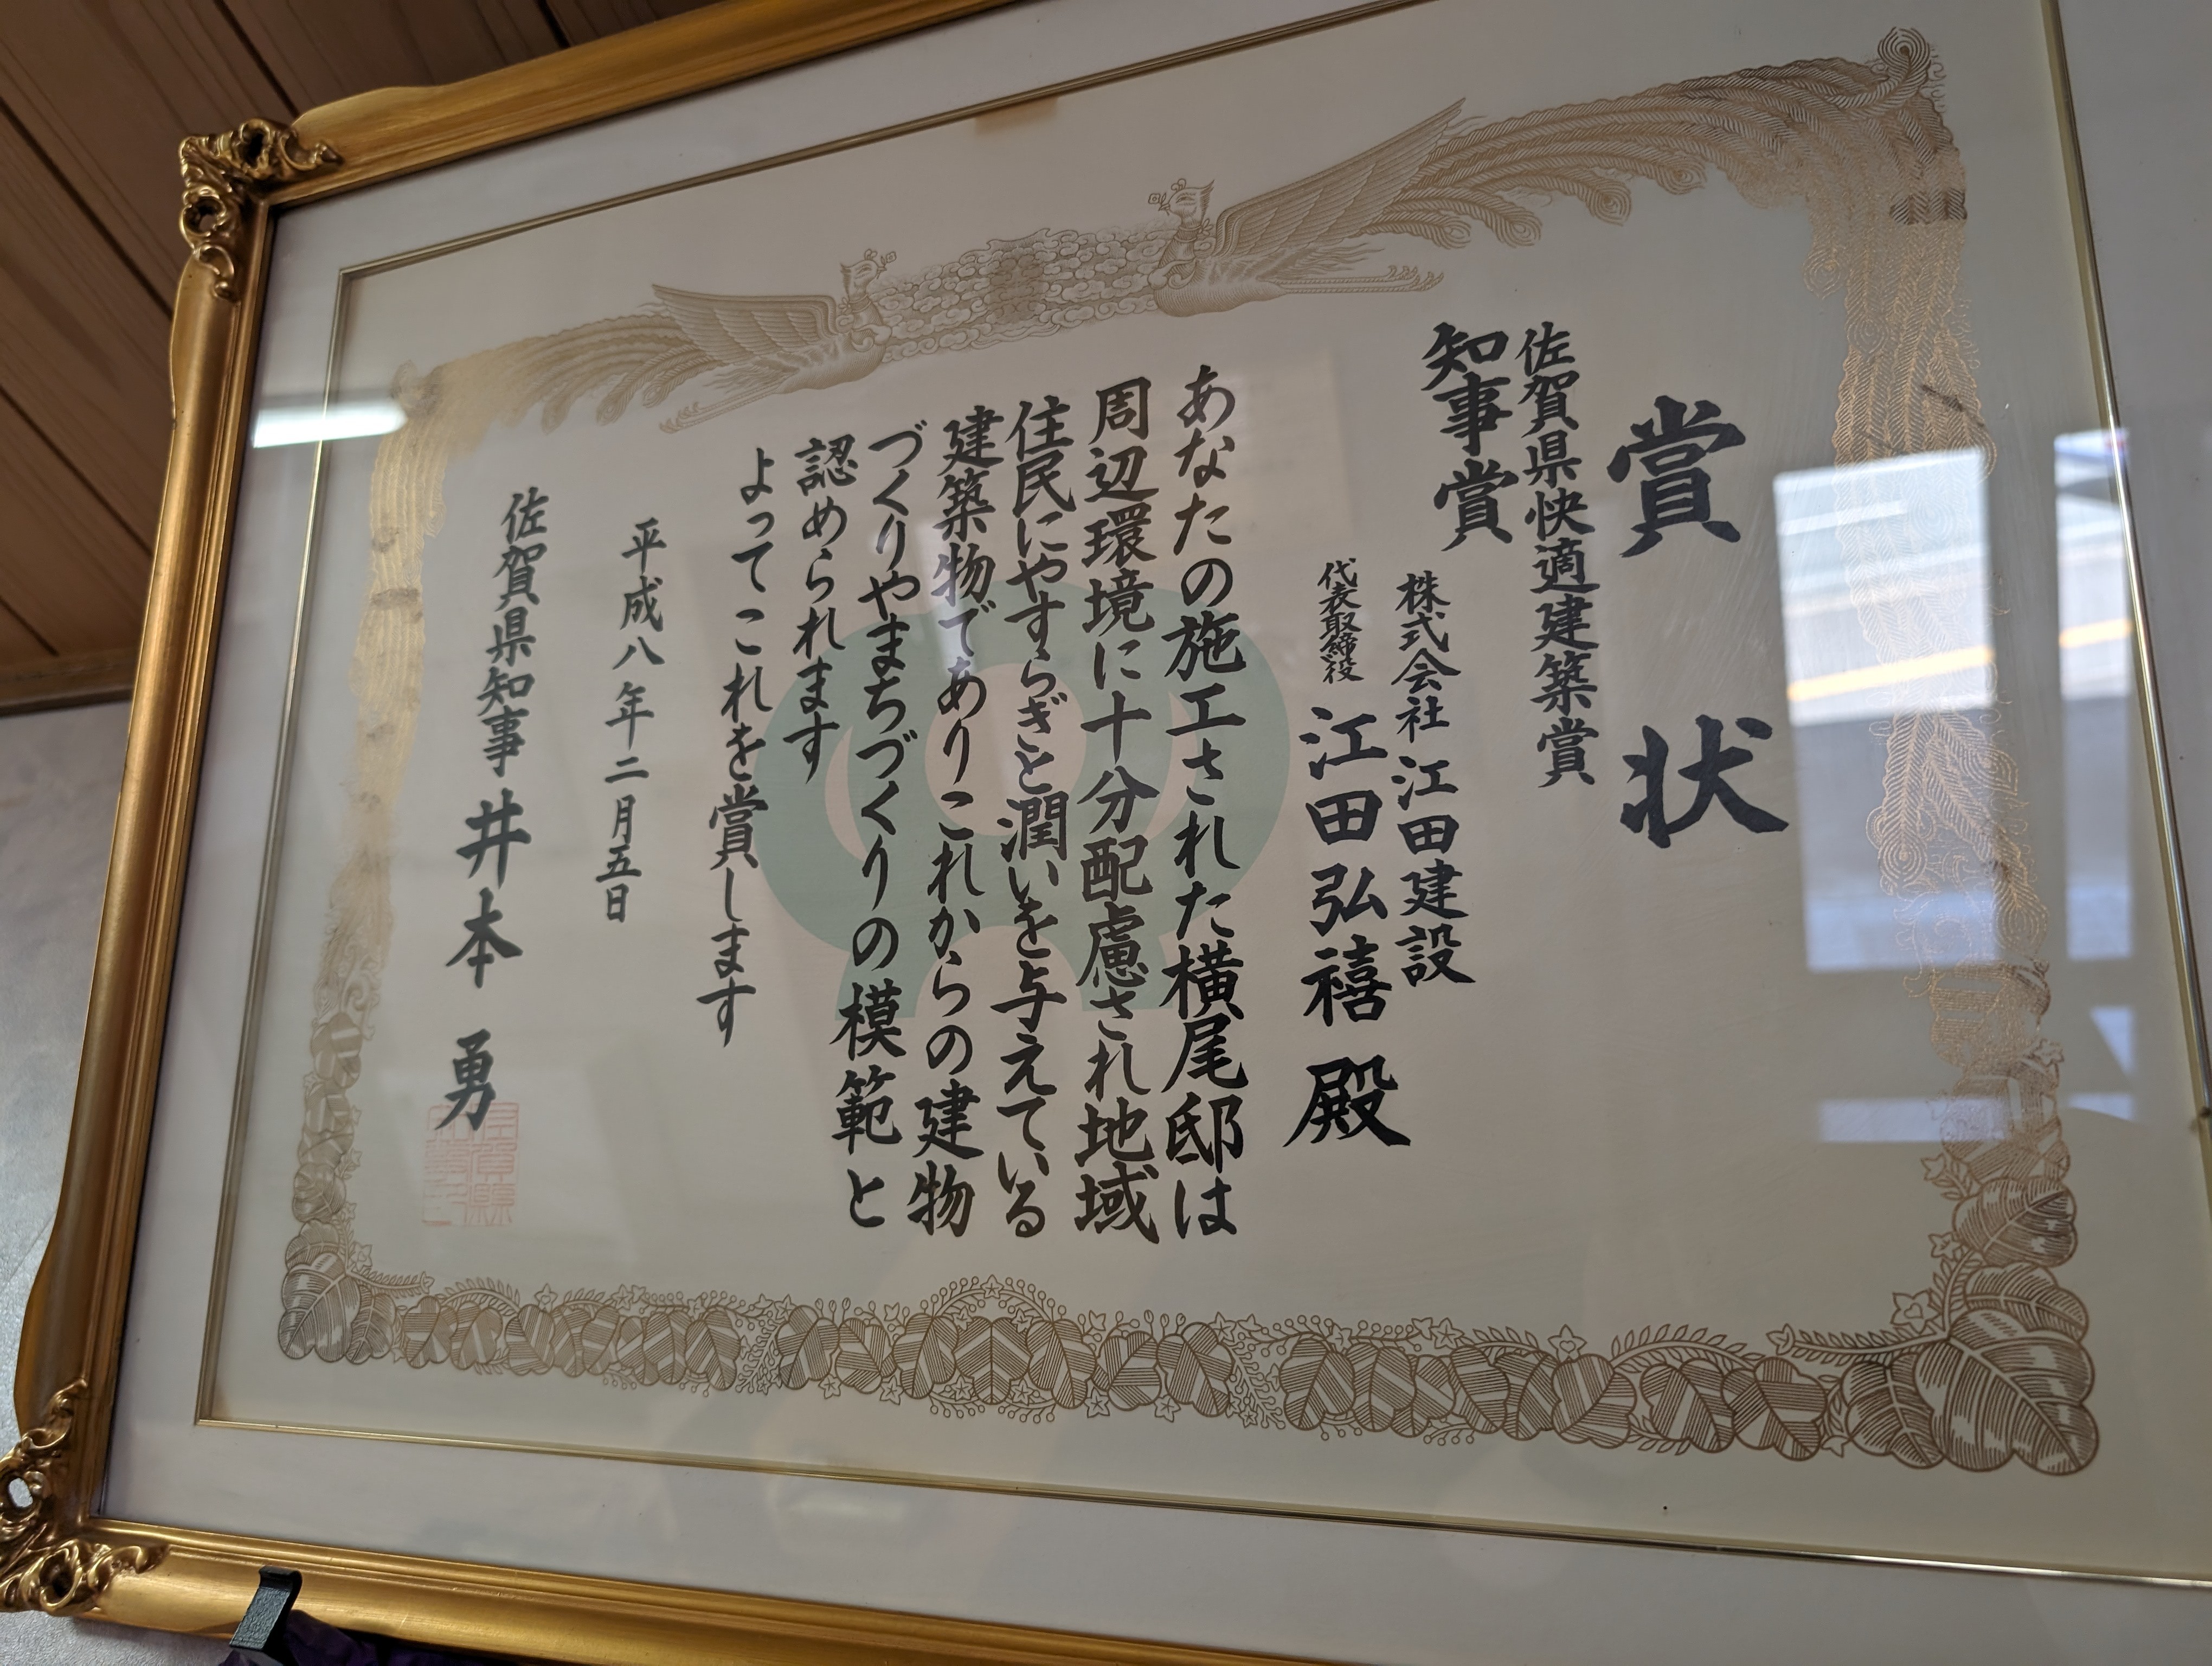 賞状
佐賀県快適建築賞
知事賞
株式会社 江田建設
代表取締役 江田弘禧 殿
あなたの施工された横尾邸は
周辺環境に十分配慮され地域
住民にやすらぎと潤いを与えている
建築物でありこれからの建物
づくりやまちづくりの模範と
認められます
よってこれを賞します
平成八年二月五日
佐賀県知事 井本 勇